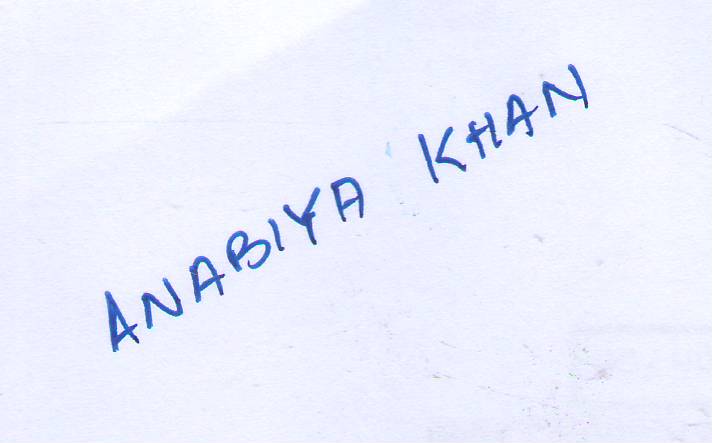 ANABIYA KHAN